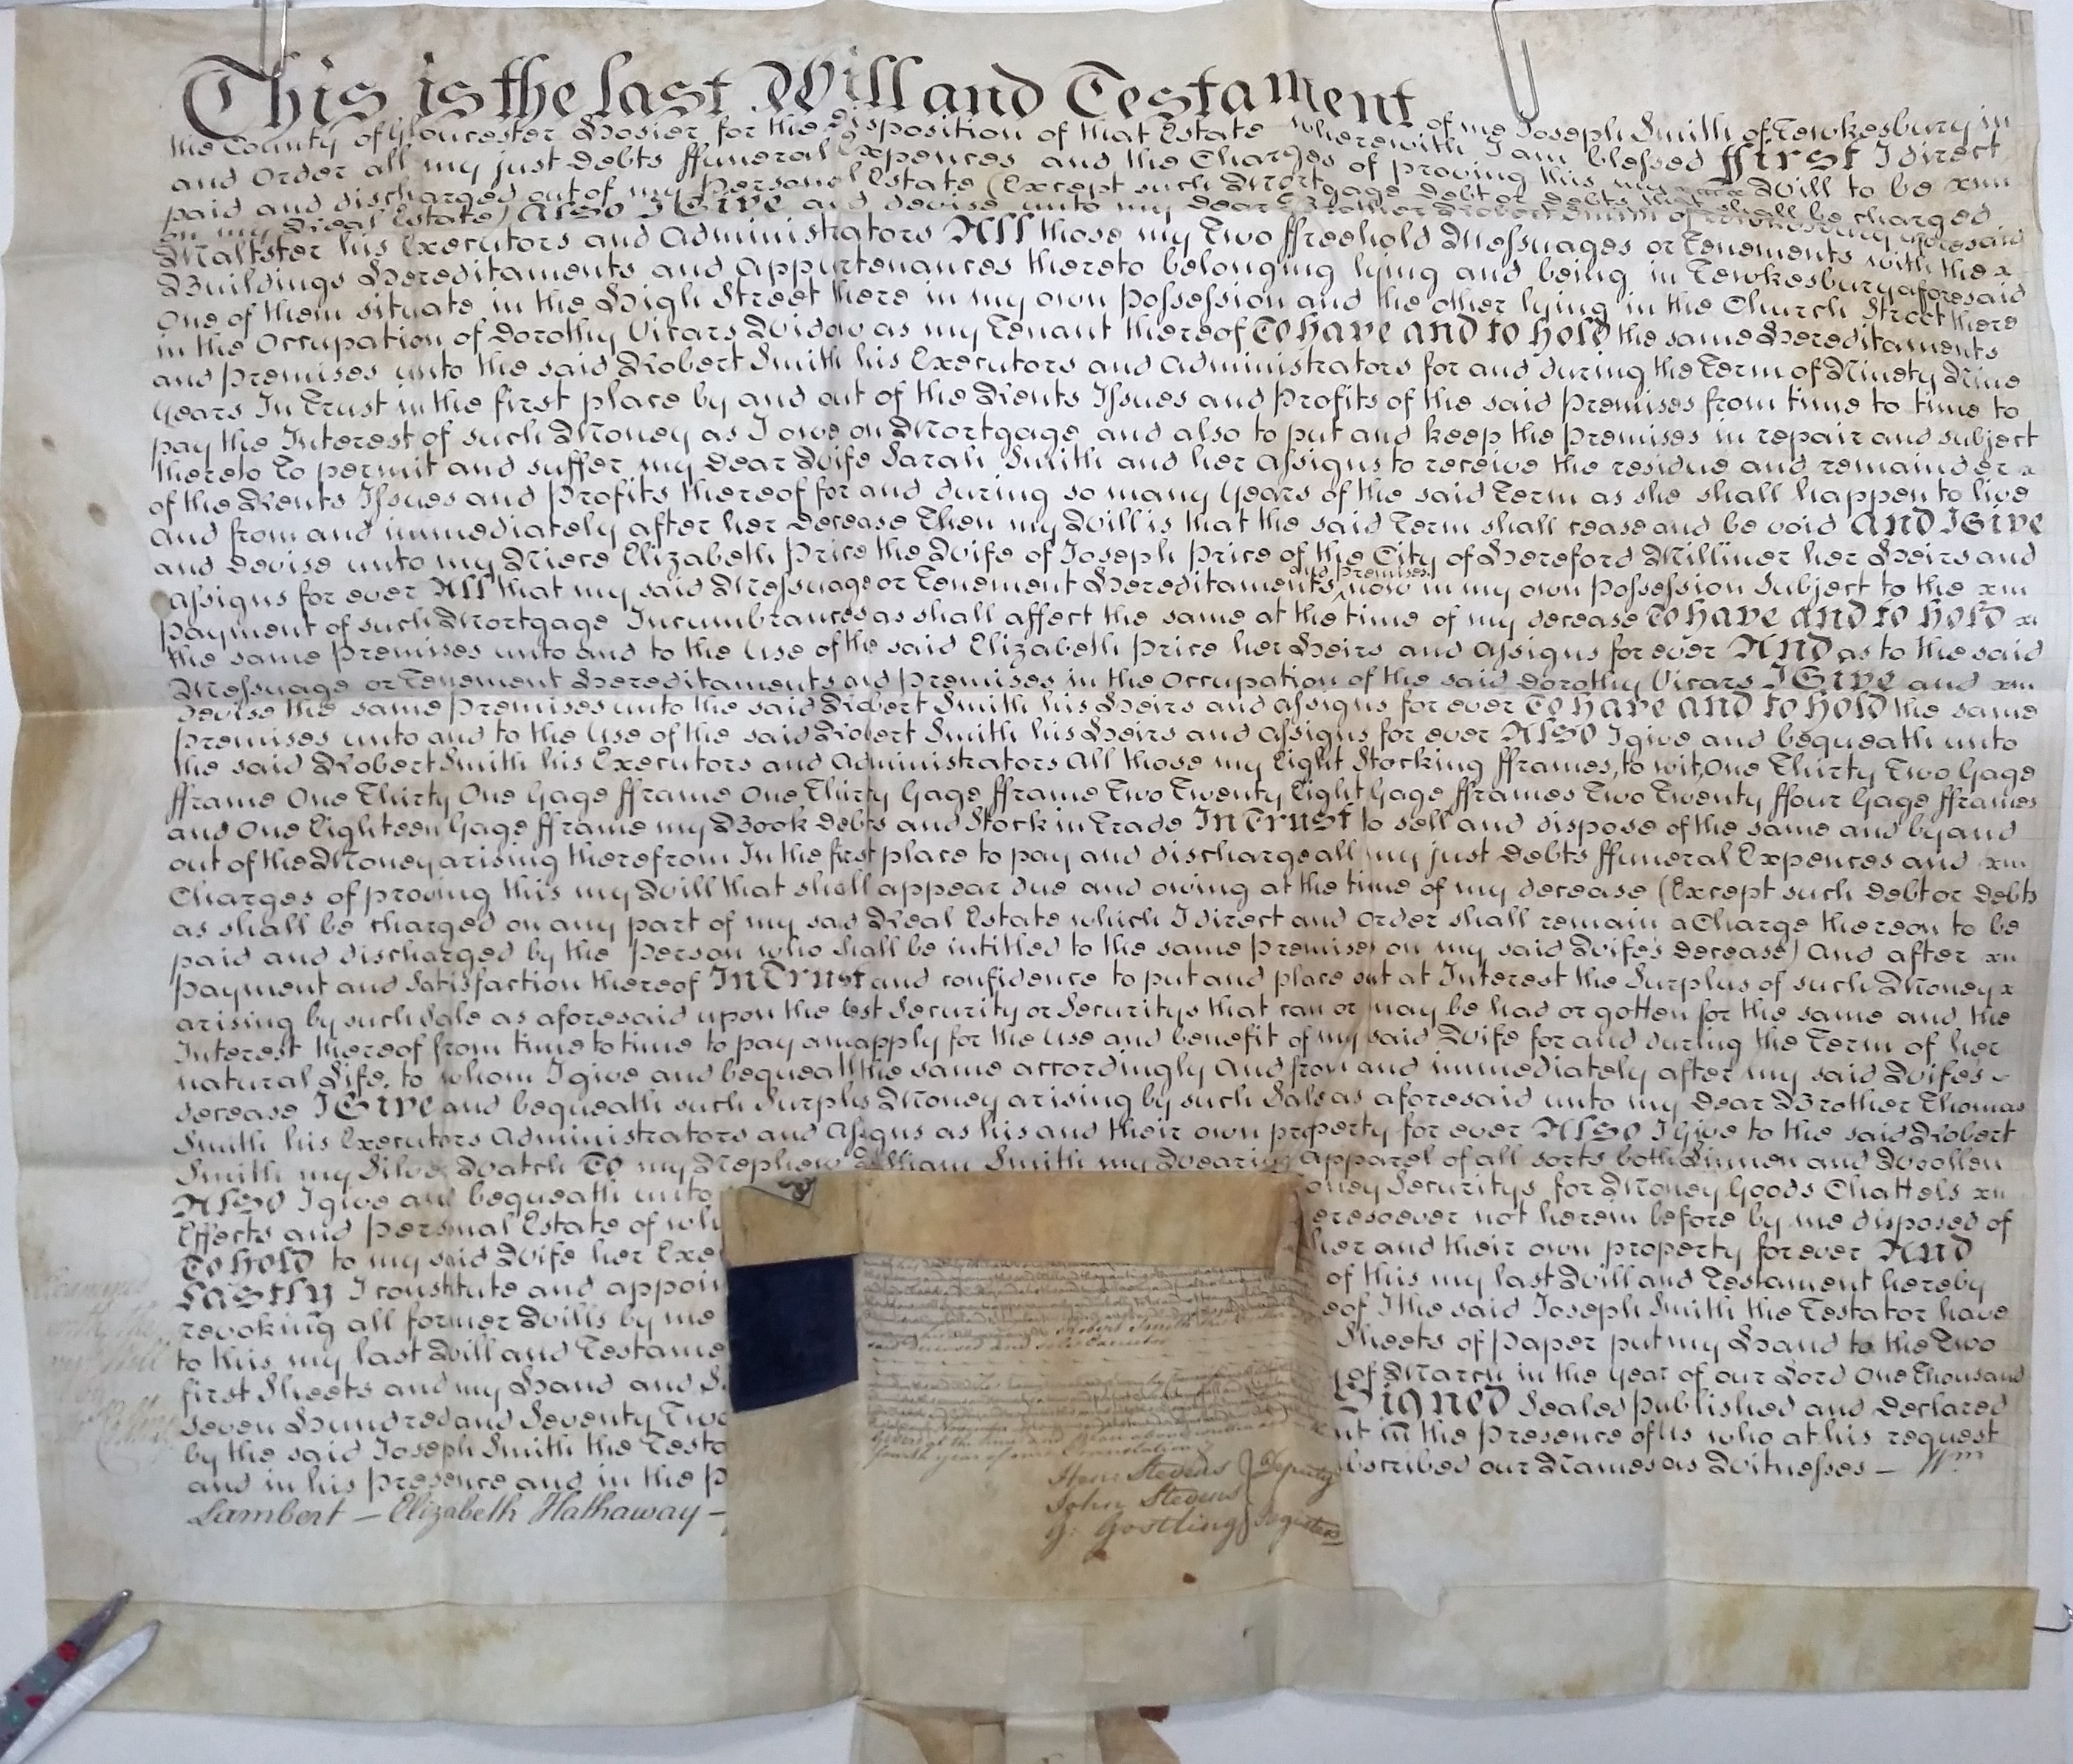 This is the last Will and Testament of me Joseph Smith of Tewkesbury in
the County of Gloucester Hosier for the Disposition of that Estate wherewith I am blessed ffirst I direct
and Order all my just Debts ffuneral Expences and the Charges of proving this my Will to be
paid and discharged out of my Personal Estate (Except such Mortgage Debt or Debts that shall be charged
on my Real Estate) Also I Give and devise unto my Dear Brother Robert Smith of Tewkesbury aforesaid
Maltster his Executors and Administrators All those my Two ffreehold Messuages or Tenements with the
Buildings Hereditaments and Appurtenances thereto belonging lying and being in Tewkesbury aforesaid
One of them situate in the High Street there in my own Possession and the other lying in the Church Street there
in the Occupation of Dorothy Vicars Widow as my Tenant thereof To have and to hold the same Hereditaments
and Premises unto the said Robert Smith his Executors and Administrators for and during the Term of Ninety Nine
Years In Trust in the first place by and out of the Rents Issues and Profits of the said Premises from time to time to
pay the Interest of such Money as I owe on Mortgage and also to put and keep the Premises in repair and subject
thereto To permit and suffer my Dear Wife Sarah Smith and her Assigns to receive the residue and remainder
of the Rents Issues and Profits thereof for and during so many Years of the said Term as she shall happen to live
And from and immediately after her Decease Then my Will is that the said Term shall cease and be void And I Give
and Devise unto my Niece Elizabeth Price the Wife of Joseph Price of the City of Hereford Milliner her Heirs and
Assigns for ever All that my said Messuage or Tenement Hereditaments and Premises now in my own Possession Subject to the
payment of such Mortgage Incumbrances as shall affect the same at the time of my decease To have and to hold
the same Premises unto and to the Use of the said Elizabeth Price her Heirs and Assigns for ever And as to the said
Messuage or Tenement Hereditaments and Premises in the Occupation of the said Dorothy Vicars I Give and
devise the same Premises unto the said Robert Smith his Heirs and Assigns for ever To have and to hold the same
Premises unto and to the Use of the said Robert Smith his Heirs and Assigns for ever Also I give and bequeath unto
the said Robert Smith his Executors and Administrators All those my Eight Stocking fframes, to wit, One Thirty Two Gage
fframe One Thirty One Gage fframe One Thirty Gage fframe Two Twenty Eight Gage fframes Two Twenty ffour Gage fframes
and One Eighteen Gage fframe my Book Debts and Stock in Trade In Trust to sell and dispose of the same and by and
out of the Money arising therefrom In the first place to pay and discharge all my just Debts ffuneral Expences and
Charges of proving this my Will that shall appear due and owing at the time of my decease (Except such Debt or Debts
as shall be charged on any part of my said Real Estate which I direct and Order shall remain a Charge thereon to be
paid and discharged by the Person who shall be intitled to the same Premises on my said Wife's Decease) And after
payment and Satisfaction thereof In Trust and confidence to put and place out at Interest the Surplus of such Money
arising by such Sale as aforesaid upon the best Security or Securitys that can or may be had or gotten for the same and the
Interest thereof from time to time to pay and apply for the Use and benefit of my said Wife for and during the Term of her
natural Life, to whom I give and bequeath the same accordingly And from and immediately after my said Wifes
decease I Give and bequeath such Surplus Money arising by such Sale as aforesaid unto my Dear Brother Thomas
Smith his Executors Administrators and Assigns as his and their own property for ever Also I Give to the said Robert
Smith my Silver Watch To my Nephew William Smith my Wearing Apparel of all sorts both Linnen and Woollen
Also I give and bequeath unto oney Securitys for Money Goods Chattels
Effects and Personal Estate of wh eresoever not herein before by me disposed of
To hold to my said Wife her Exe her and their own property for ever And
Lastly I constitute and appoin of this my last Will and Testament hereby
revoking all former Wills by me eof I the said Joseph Smith the Testator have
to this my last Will and Testame Sheets of Paper put my Hand to the Two
first Sheets and my Hand and S y of March in the Year of our Lord One Thousand
Seven Hundred and Seventy Two Signed Sealed Published and Declared
by the said Joseph Smith the Testa nt in the Presence of Us who at his request
and in his Presence and in the P bscribed our Names as Witnesses — Wm
Lambert — Elizabeth Hathaway —
Robert Smith the Brother
said deceased and sole Executor
Hen: Stevens } Deputy
John Stevens
G: Gostling } Registers